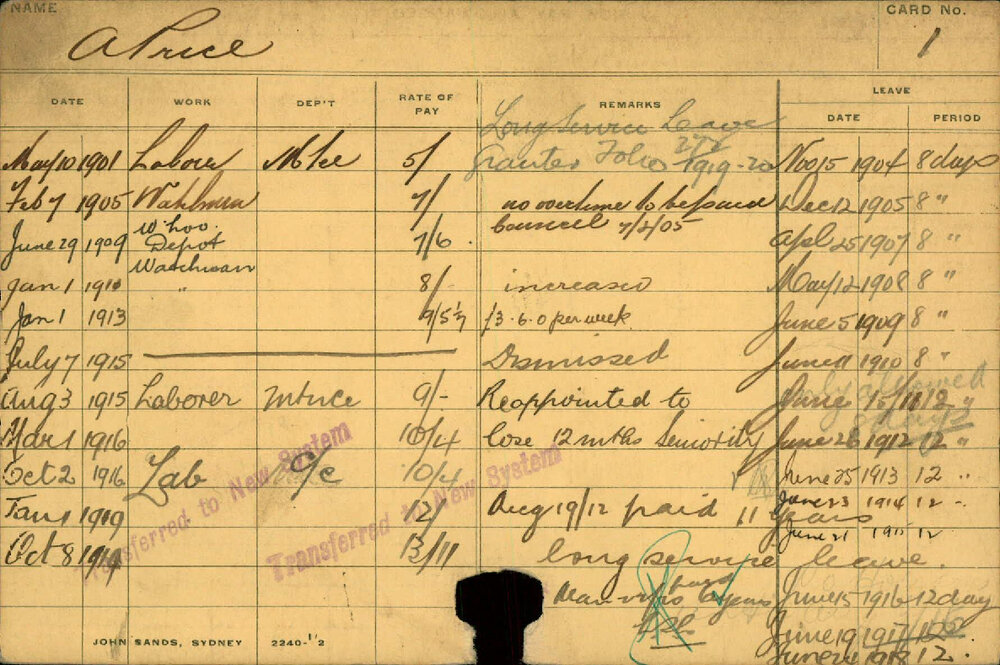 NAME CARD No.
A Price 1
DATE WORK DEP'T RATE OF PAY REMARKS LEAVE
DATE PERIOD
Long Service Leave
May 10 1901 Laborer Mtce 5/ Granted Folio 272 1919-20 Nov 15 1904 8 days
Feb 7 1905 Watchman 7/ no overtime to be paid Dec 12 1905 8 "
council 7/2/05
June 29 1909 W'hoo Depot 7/6 Apl 25 1907 8 "
Watchman
Jan 1 1910 " 8/- increased May 12 1908 8 "
Jan 1 1913 9/5½ £3.6.0 per week June 5 1909 8 "
July 7 1915 Dismissed June 11 1910 8 "
only allowed
Aug 3 1915 Laborer Mtnce 9/- Reappointed to June 15/11 12 "
8 days
Mar 1 1916 10/4 lose 12 mths Seniority June 26 1912 12 "
Oct 2 1916 Lab C/c 10/4 June 25 1913 12 "
Transferred to New System
Transferred to New System
June 23 1914 12 "
Jan 1 1919 12/ Aug 19/12 paid 11 years
June 21 12
Oct 8 1919 13/11 long service leave.
years June 15 1916 12 day
June 19 1917 12
June 12.
JOHN SANDS, SYDNEY 2240-1'2